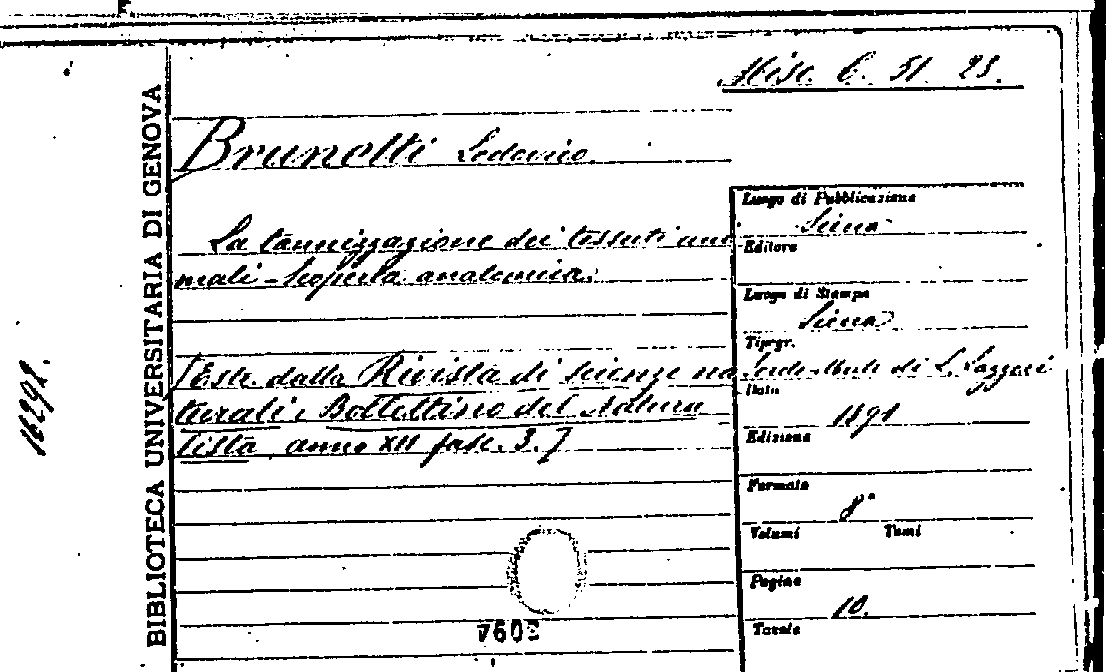 Misc. C. 51. 23.
Brunetti Lodovico.
La tannizzazione dei tessuti ani
mali - Scoperta anatomica.
[Estr. dalla Rivista di scienze na
turali e Bollettino del Natura
lista anno XII fasc. 3.]
Luogo di Pubblicazione
Siena
Editore
Luogo di Stampa
Siena
Tipogr.
di L. Lazzeri
Data
1891
Edizione
Formato
8°
Volumi Tomi
Pagine
10.
Tavole
BIBLIOTECA UNIVERSITARIA DI GENOVA
16292.